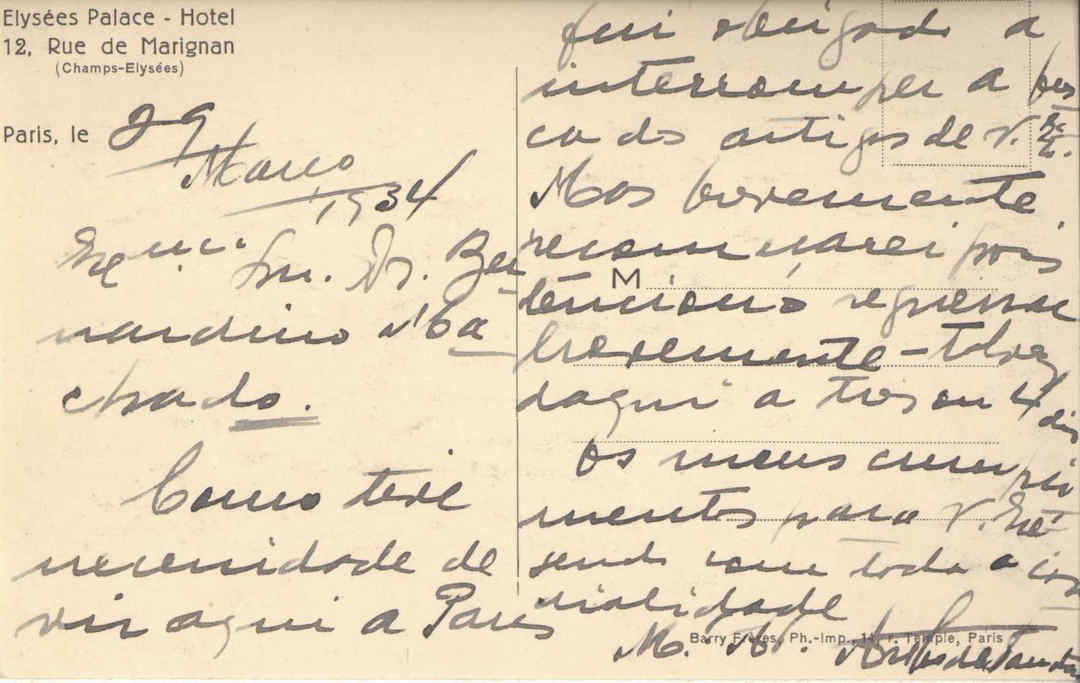 Elysées Palace - Hotel
12, Rue de Marignan
(Champs-Elysées)
Paris, le 29
Março
1934
Exmo. Snr. Dr. Ber
nardino Ma
chado.
Como tive
necessidade de
vir aqui a Paris
fui obrigado a
interromper a
dos artigos de V.
Mas brevemente
recomeçarei pois
M
tenciono regressar
brevemente - talvez
daqui a tres ou 4 dias
Os meus cumpri
mentos para V. Exª
sendo com toda a cor
dialidade
Barry Frères, Ph.-Imp., 11, r. Temple, Paris
M.